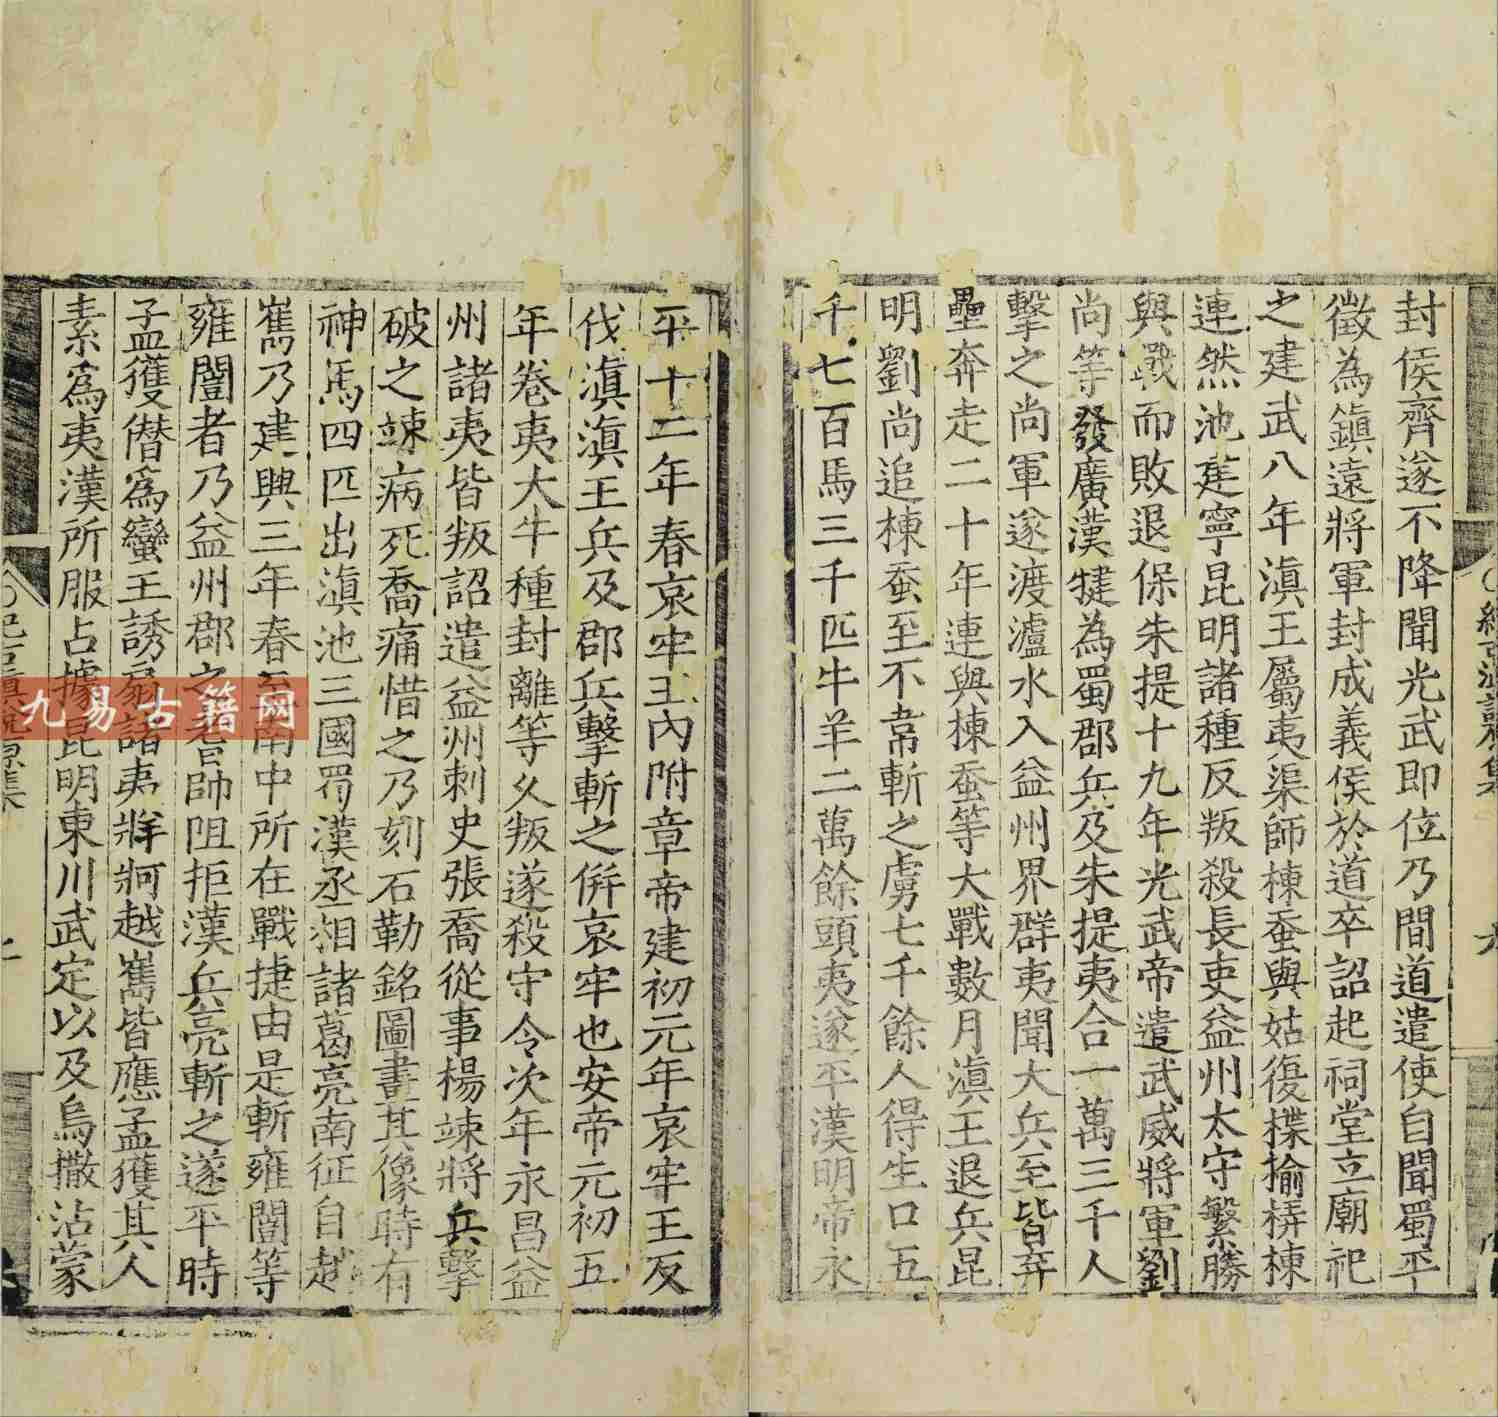 封侯齊遂不降聞光武即位乃間道遣使自聞蜀平
徵為鎮遠將軍封成義侯於道卒詔起祠堂立廟祀
之建武八年滇王屬夷渠師棟蚕與姑復楪揄梇棟
連然池建寧昆明諸種反叛殺長吏益州太守繁勝
與戰而敗退保朱提十九年光武帝遣武威將軍劉
尚等發廣漢犍為蜀郡兵及朱提夷合一萬三千人
擊之尚軍遂渡瀘水入益州界群夷聞大兵至皆弃
壘奔走二十年連與棟蚕等大戰數月滇王退兵昆
明劉尚追棟蚕至不韋斬之虜七千餘人得生口五
千七百馬三千匹牛羊二萬餘頭夷遂平漢明帝永
平十二年春哀牢王內附章帝建初元年哀牢王反
伐滇滇王兵及郡兵擊斬之併哀牢也安帝元初五
年卷夷大牛種封離等久叛遂殺守令次年永昌益
州諸夷皆叛詔遣益州刺史張喬從事楊竦將兵擊
破之竦病死喬痛惜之乃刻石勒銘圖畫其像時有
神馬四匹出滇池三國蜀漢丞相諸葛亮南征自越
嶲乃建興三年春南中所在戰捷由是斬雍闓等
雍闓者乃益州郡之耆帥阻拒漢兵亮斬之遂平時
孟獲僭為蠻王誘扇諸夷牂牁越嶲皆應孟獲其人
素為夷漢所服占據昆明東川武定以及烏撒沾蒙
九易古籍网